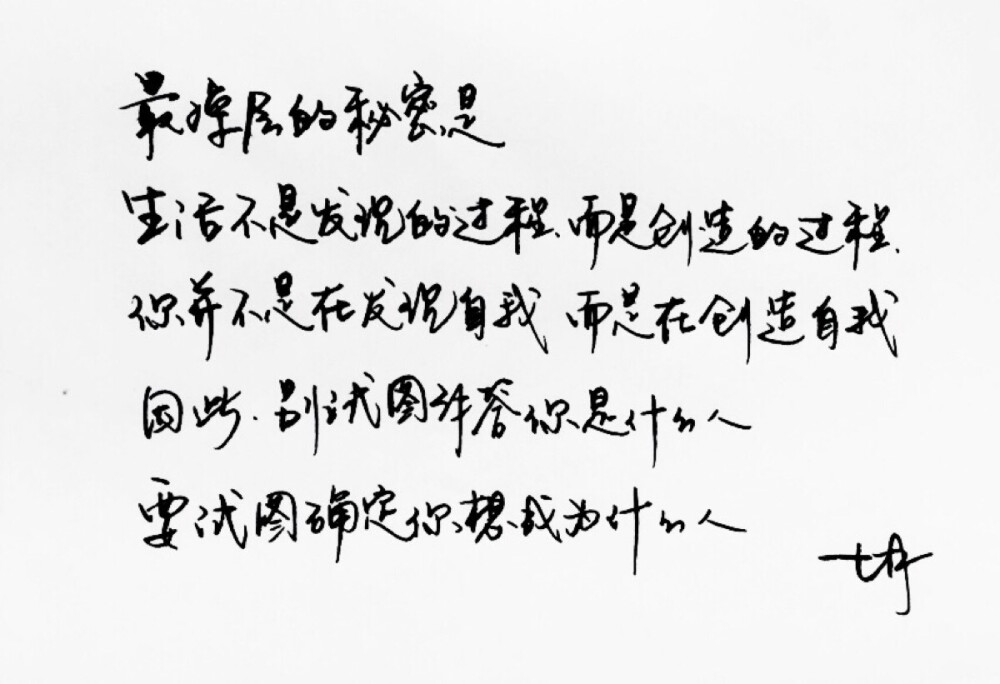 最深层的秘密是
生活不是发现的过程、而是创造的过程.
你并不是在发现自我 而是在创造自我
因此.别试图解答你是什么人
要试图确定你想成为什么人